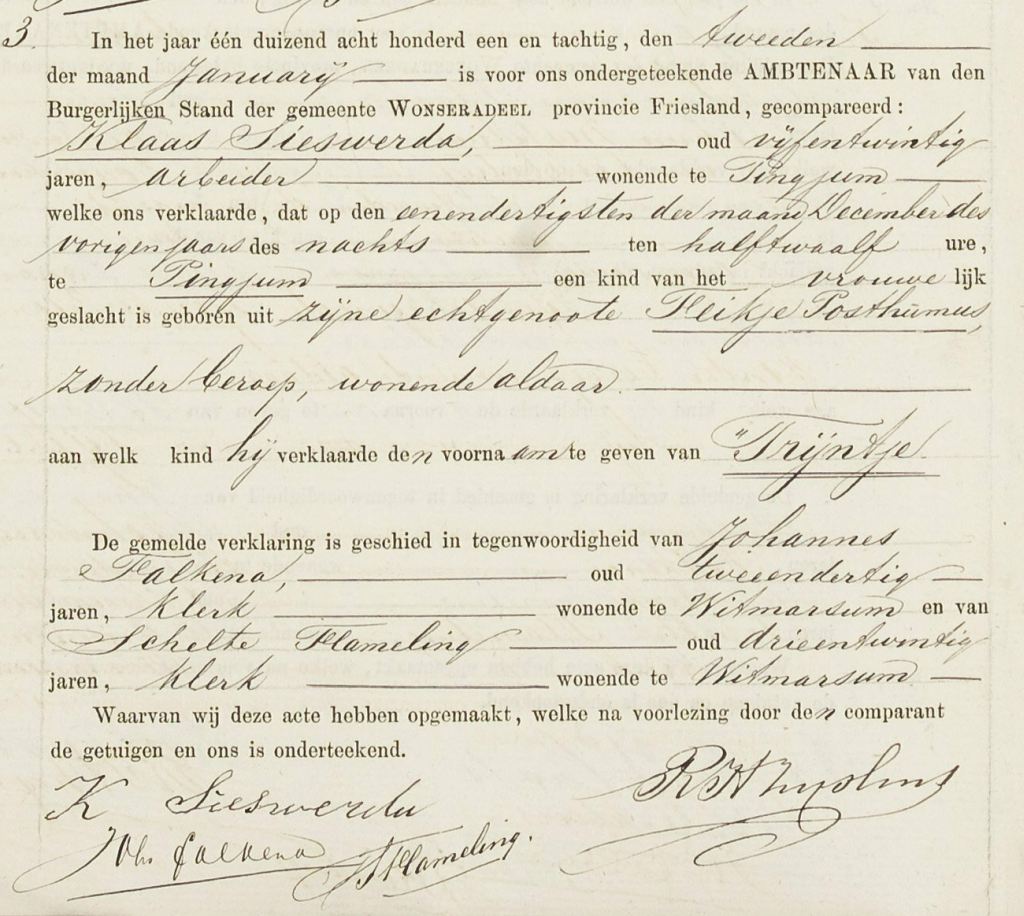 3. In het jaar één duizend acht honderd een en tachtig, den tweeden
der maand Januarij is voor ons ondergeteekende AMBTENAAR van den
Burgerlijken Stand der gemeente WONSERADEEL provincie Friesland, gecompareerd:
Klaas Sieswerda, oud vijfentwintig
jaren, arbeider wonende te Pingjum
welke ons verklaarde, dat op den eenendertigsten der maand December des
vorigen jaars des nachts ten halftwaalf ure,
te Pingjum een kind van het vrouwelijk
geslacht is geboren uit zijne echtgenoote Fleikje Posthumus,
zonder beroep, wonende aldaar.
aan welk kind hij verklaarde den voornaam te geven van "Trijntje.
De gemelde verklaring is geschied in tegenwoordigheid van Johannes
Falkena, oud tweeendertig
jaren, klerk wonende te Witmarsum en van
Schelte Flameling oud drieentwintig
jaren, klerk wonende te Witmarsum
Waarvan wij deze acte hebben opgemaakt, welke na voorlezing door den comparant
de getuigen en ons is onderteekend.
K Sieswerda
Joh. Falkena
S Flameling.